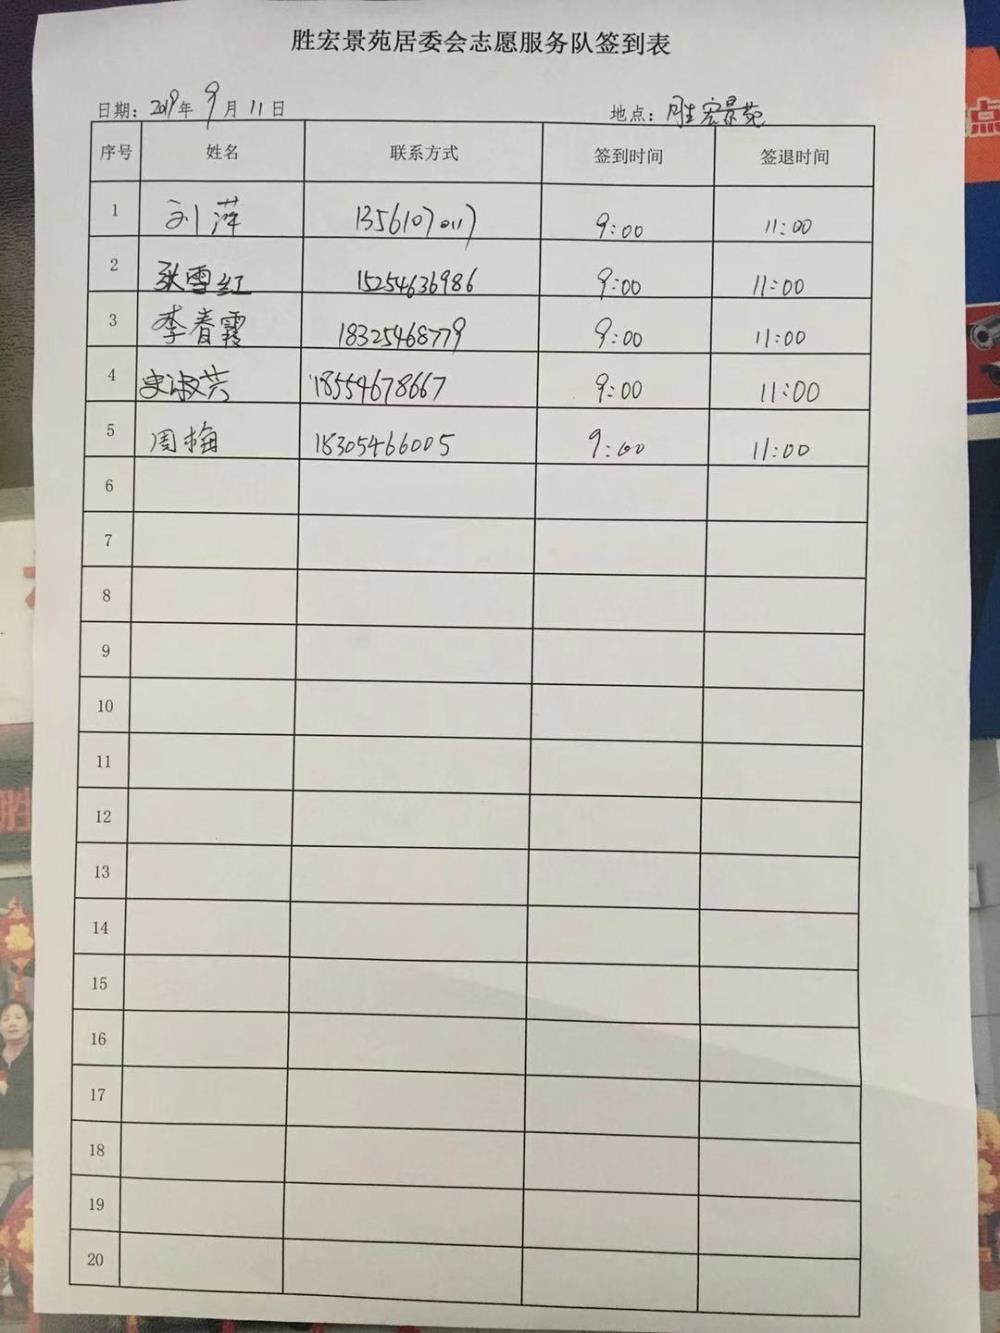 胜宏景苑居委会志愿服务队签到表
日期: 2019年 9月 11日 地点: 胜宏景苑
序号 姓名 联系方式 签到时间 签退时间
1 刘萍 13561070117 9:00 11:00
2 耿雪红 15254636986 9:00 11:00
3 李春霞 18325468779 9:00 11:00
4 史淑芳 18554678667 9:00 11:00
5 周梅 18305466005 9:00 11:00
6
7
8
9
10
11
12
13
14
15
16
17
18
19
20
点
胜